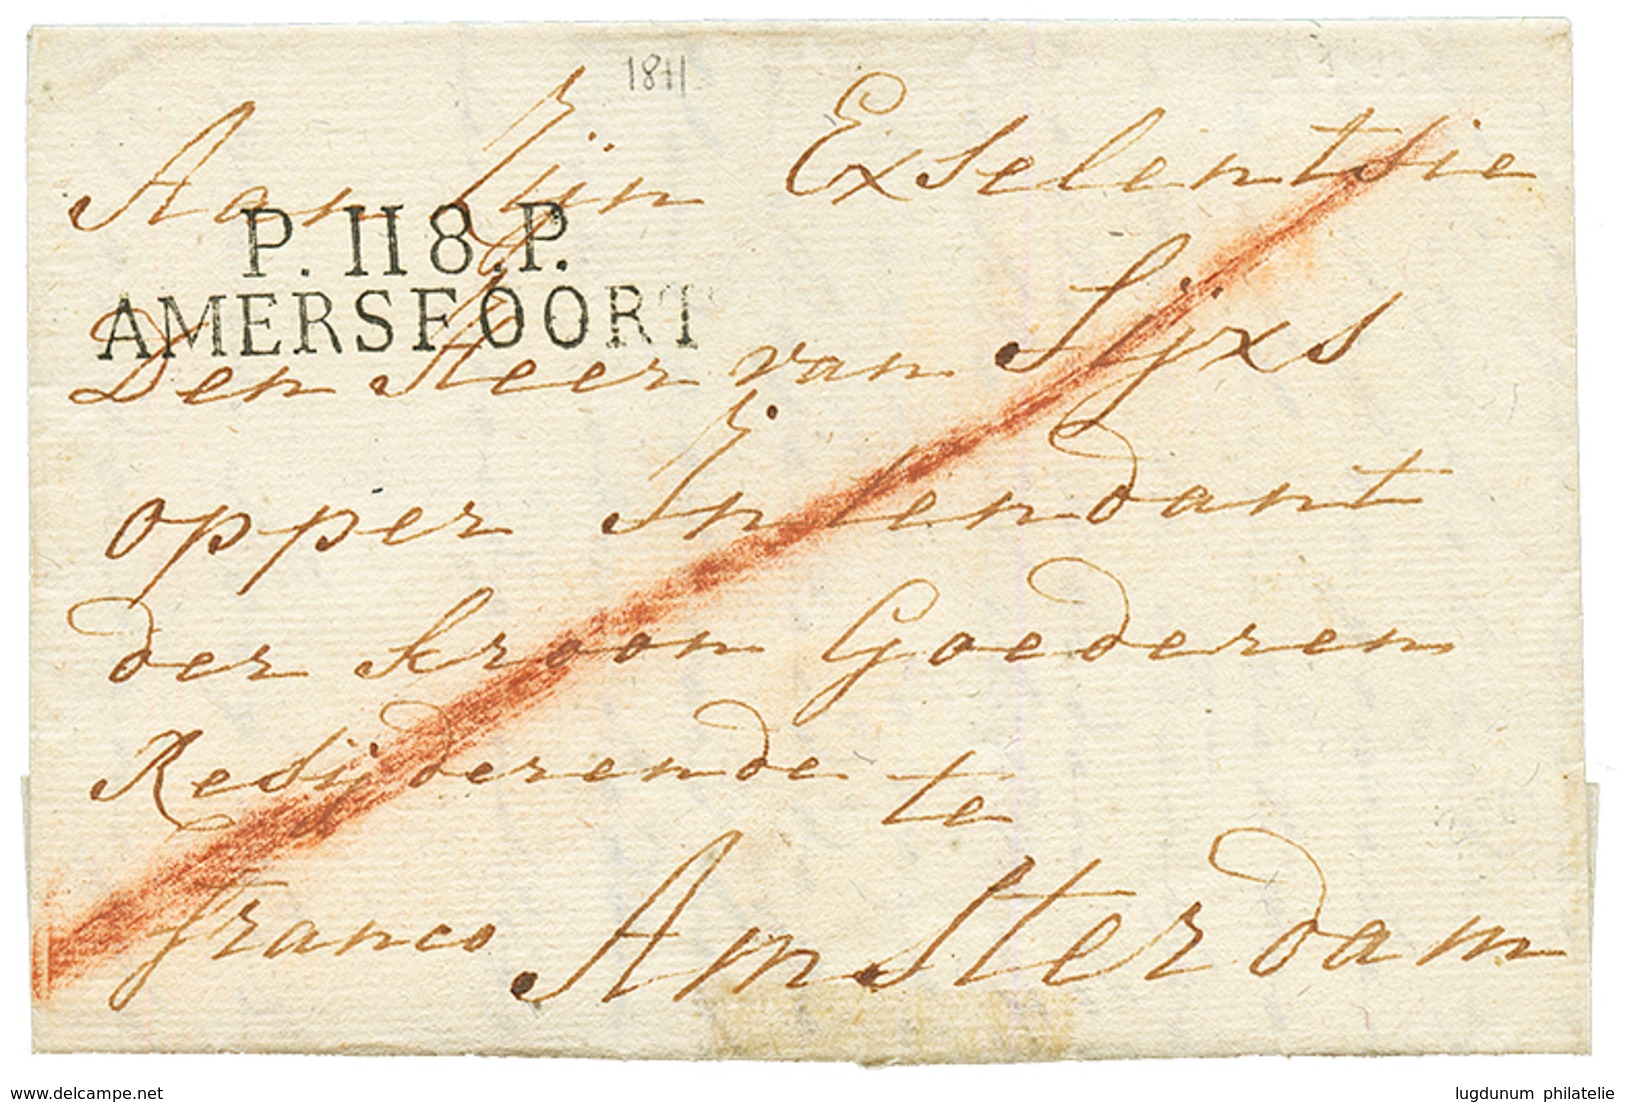 1811
Aan Zijn Exselentsie
P.118.P.
AMERSFOORT
Den Heer van Sijxs
opper Intendant
der Kroon Goederen
Resijderende te
franco Amsterdam
www.delcampe.net
lugdunum philatelie